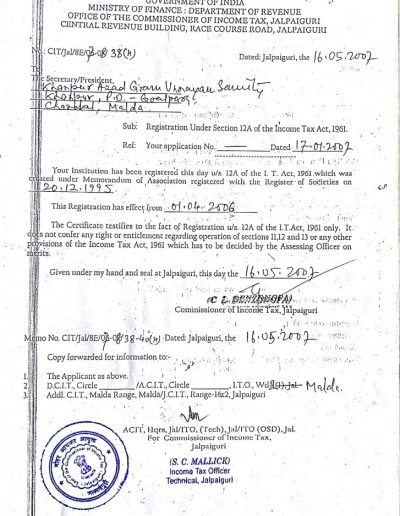 GOVERNMENT OF INDIA
MINISTRY OF FINANCE : DEPARTMENT OF REVENUE
OFFICE OF THE COMMISSIONER OF INCOME TAX, JALPAIGURI
CENTRAL REVENUE BUILDING, RACE COURSE ROAD, JALPAIGURI
No.: CIT/Jal/8E/ 38(H) Dated: Jalpaiguri, the 16.05.2007
To
The Secretary/President,
Khanpur Gram Unnayan Samity
Khanpur, P.O. -
Chanchal, Malda.
Sub: Registration Under Section 12A of the Income Tax Act, 1961.
Ref: Your application No. — Dated 17.01.2007
Your Institution has been registered this day u/s. 12A of the I. T. Act, 1961 which was
created under Memorandum of Association registered with the Register of Societies on
20.12.1995
This Registration has effect from 01.04.2006
The Certificate testifies to the fact of Registration u/s. 12A of the I.T.Act, 1961 only. It
does not confer any right or entitlement regarding operation of sections 11,12 and 13 or any other
provisions of the Income Tax Act, 1961 which has to be decided by the Assessing Officer on
merits.
Given under my hand and seal at Jalpaiguri, this day the 16.05.2007
(C. L. DENZONGPA)
Commissioner of Income Tax, Jalpaiguri
Memo No. CIT/Jal/8E/ Dated: Jalpaiguri, the 16.05.2007
Copy forwarded for information to:-
1. The Applicant as above.
2. D.C.I.T., Circle ________/A.C.I.T., Circle ________, I.T.O., Malda.
3. Addl. C.I.T., Malda Range, Malda/J.C.I.T., Range-1&2, Jalpaiguri
ACIT, Hqrs, Jal/ITO, (Tech), Jal/ITO (OSD), Jal.
For Commissioner of Income Tax,
Jalpaiguri
(S. C. MALLICK)
Income Tax Officer
Technical, Jalpaiguri